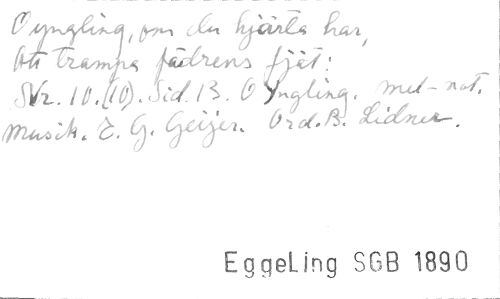 O yngling, om du hjärta har,
att trampa fädrens fjät:
Nr. 10. (10). Sid. 13. O Yngling. mel-not.
musik. E. G. Geijer. Ord. B. Lidner.
EggeLing SGB 1890